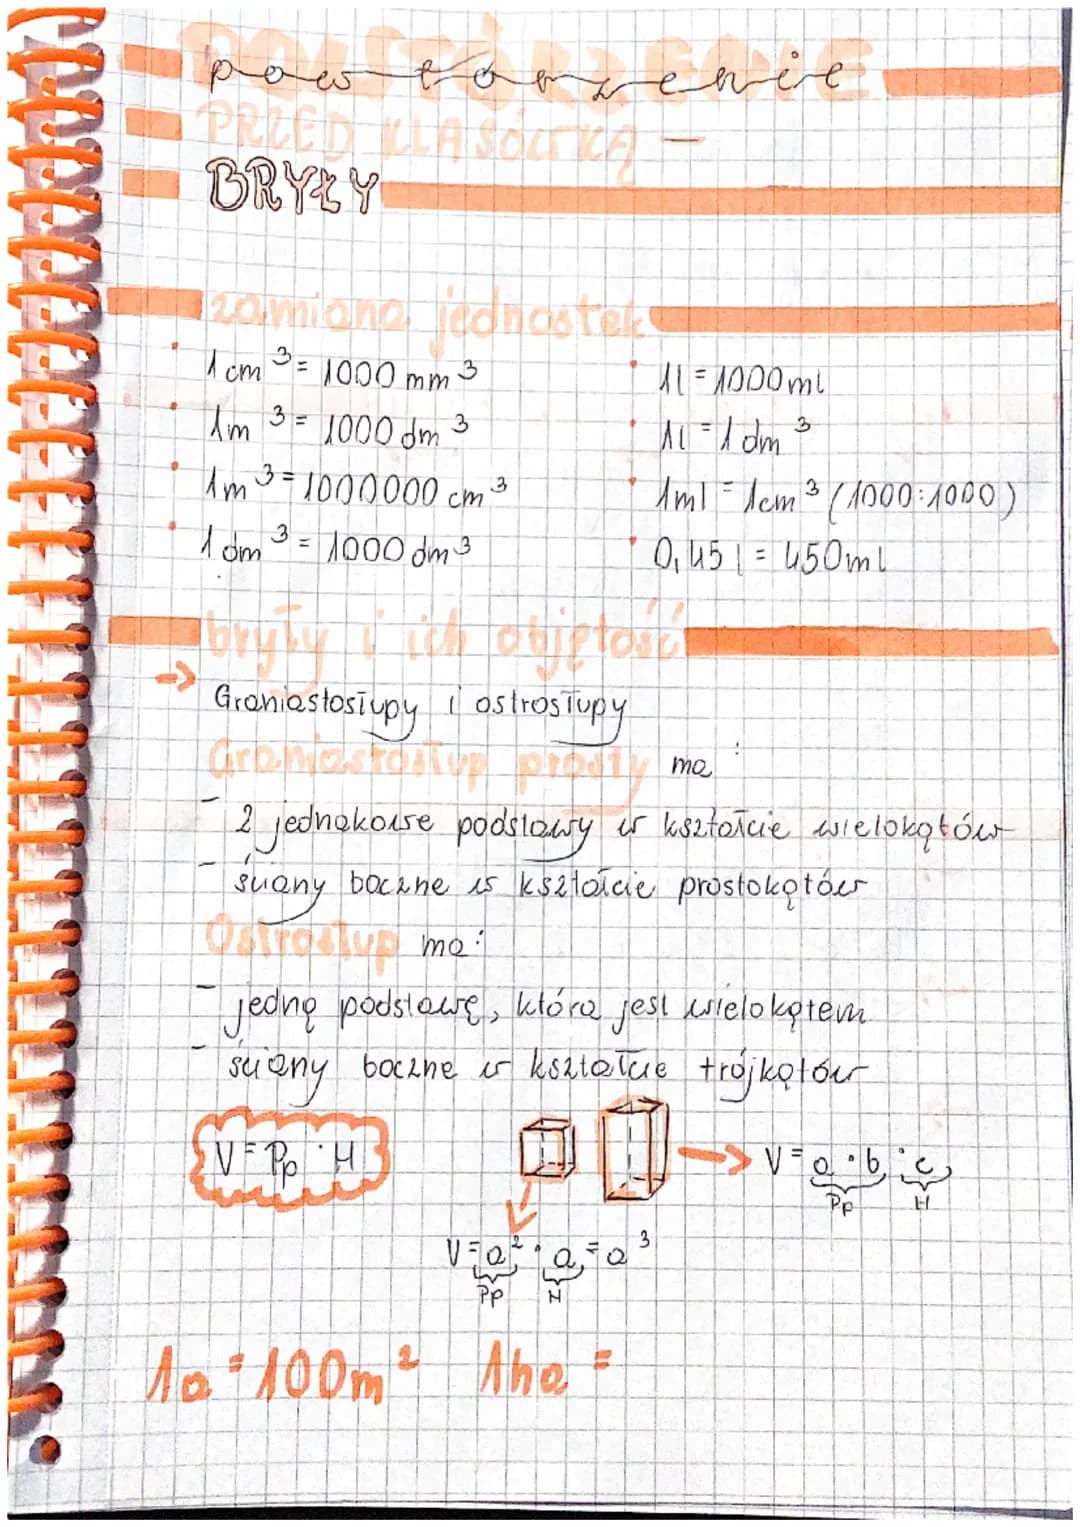 POWTÓRZENIE
powtórzenie
PRZED KLASÓWKĄ -
BRYŁY
zamiana jednostek
1 cm³ = 1000 mm³
1m³ = 1000 dm³
1m³ = 1000000 cm³
1 dm³ = 1000 dm³
1l = 1000ml
1l = 1 dm³
1ml = 1cm³ (1000:1000)
0,45 l = 450ml
bryły i ich objętość
→ Graniastosłupy i ostrosłupy
Graniastosłup prosty ma:
- 2 jednakowe podstawy w kształcie wielokątów
- ściany boczne w kształcie prostokątów
Ostrosłup ma:
- jedną podstawę, która jest wielokątem
- ściany boczne w kształcie trójkątów
V = Pp · H
→ V = a · b · c
Pp H
V = a² · a = a³
Pp H
1a = 100m² 1ha =